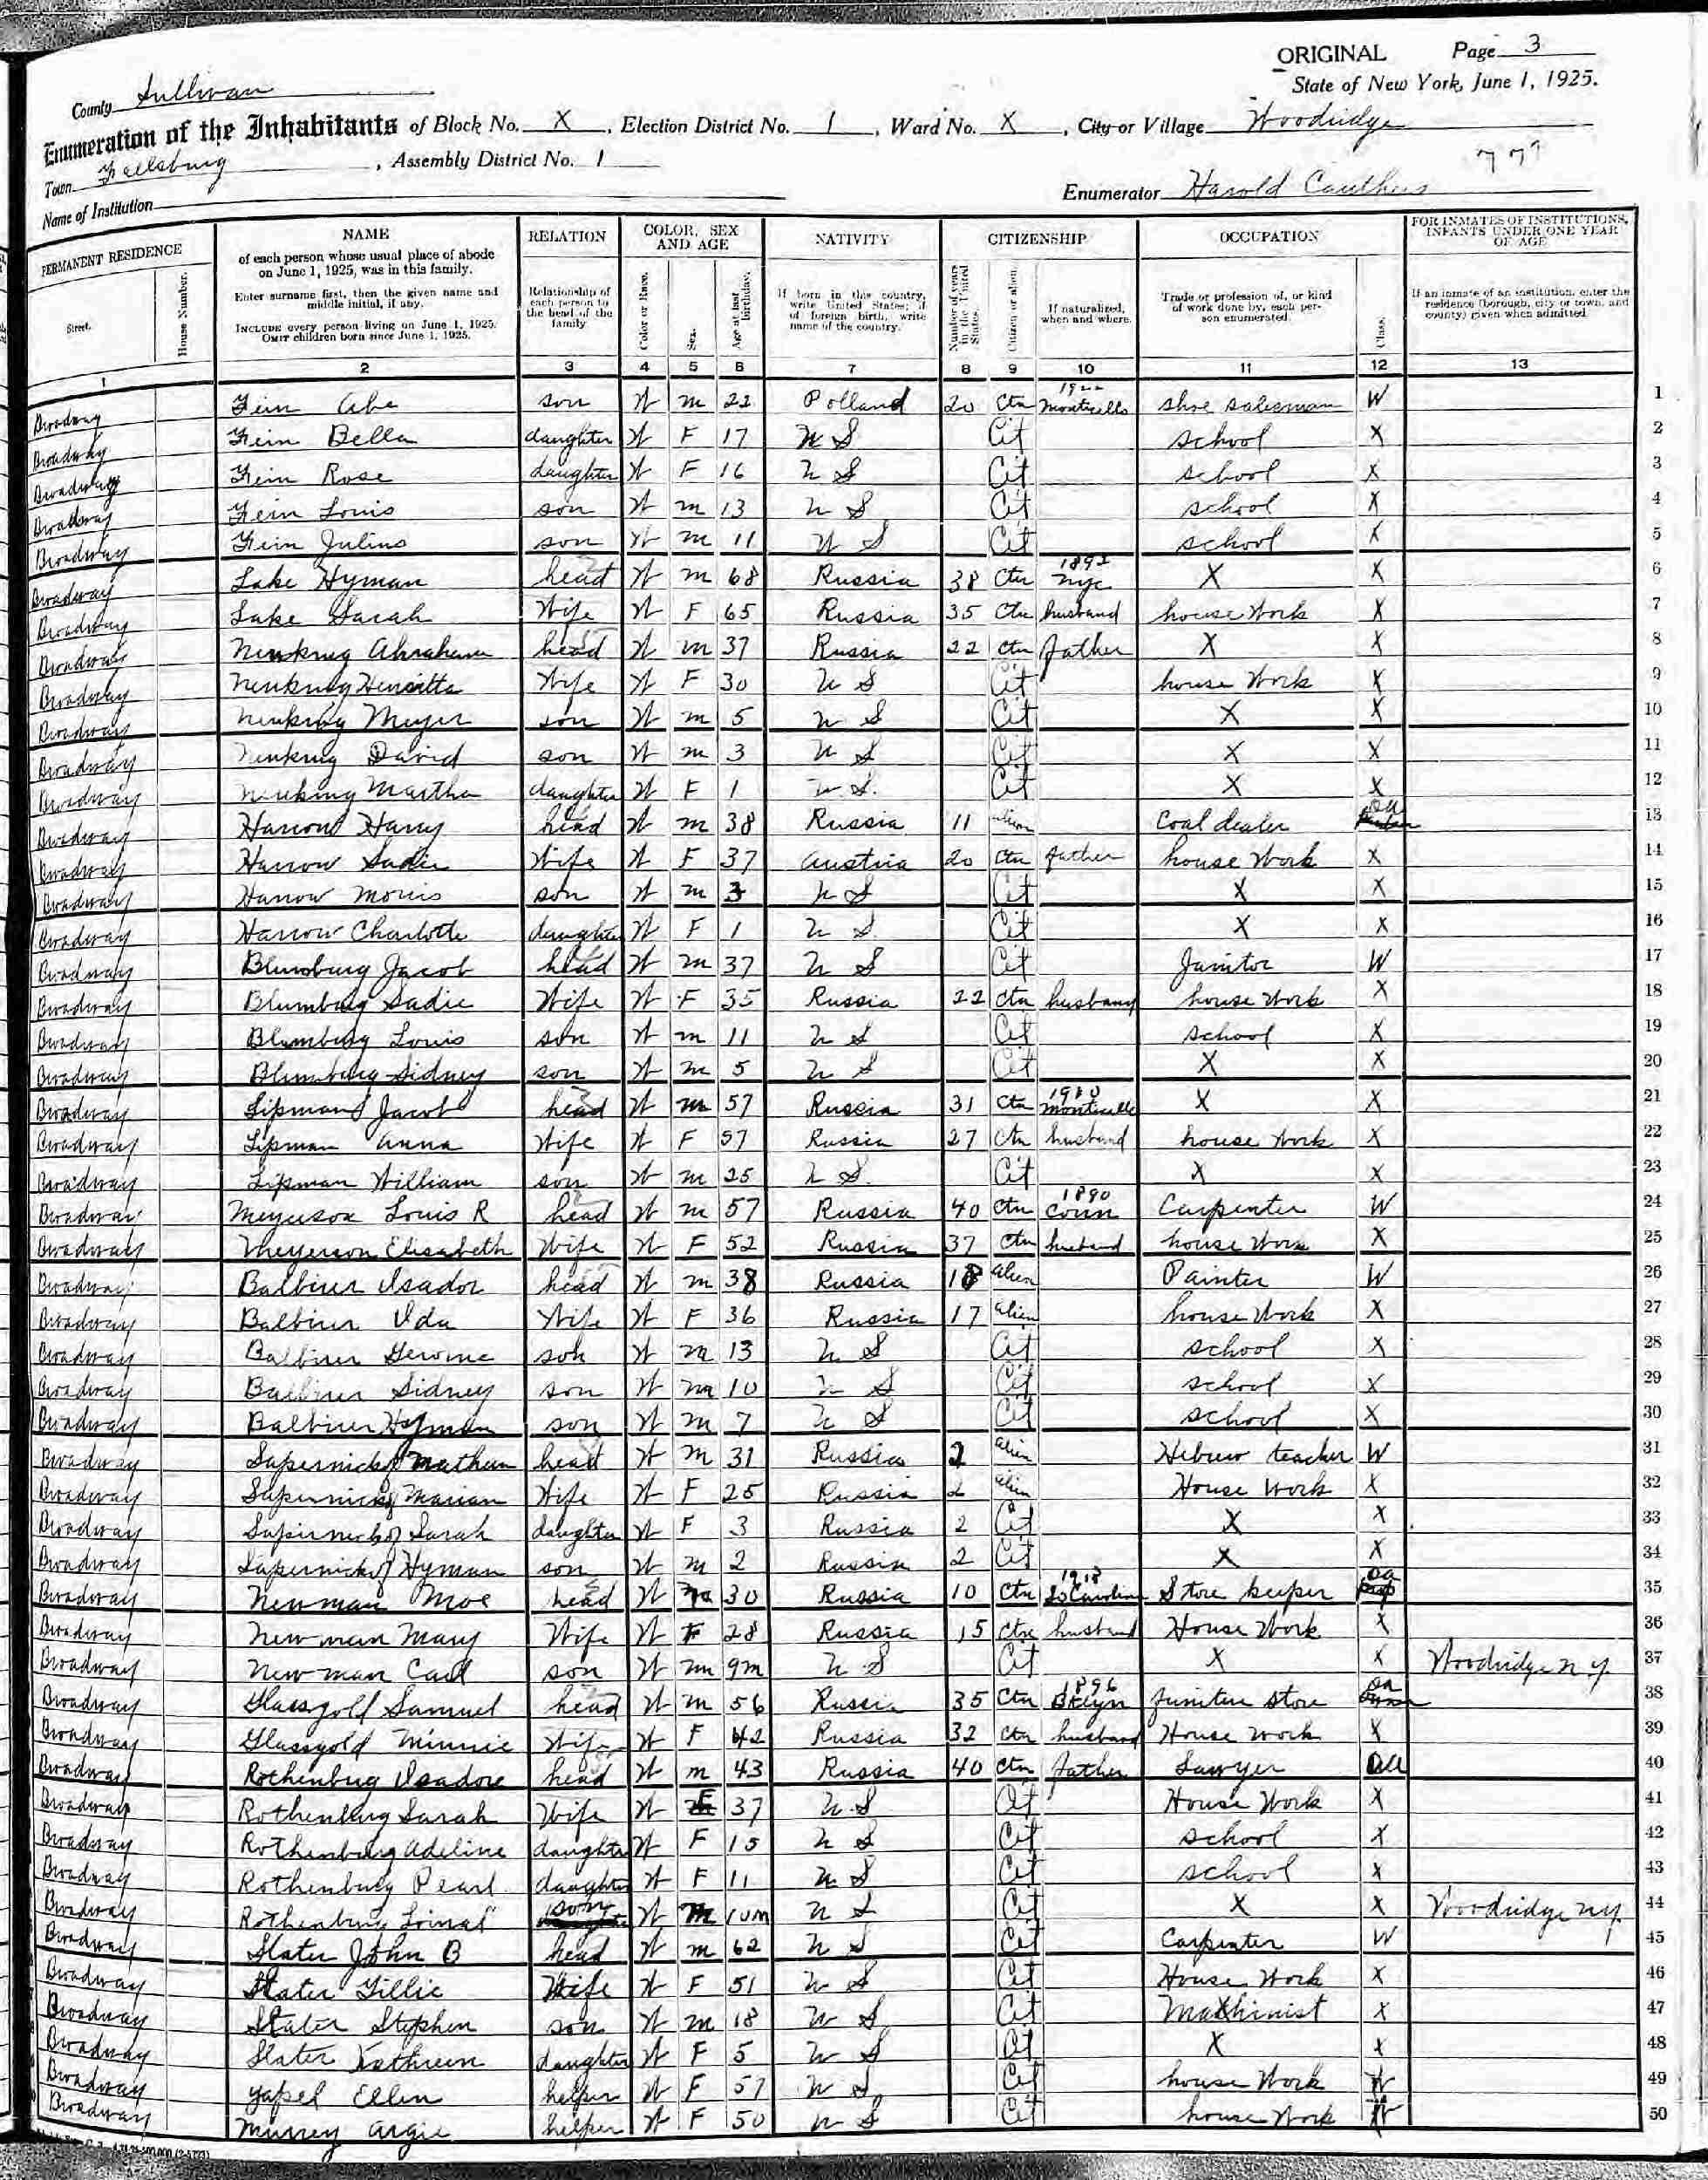 ORIGINAL Page 3
State of New York, June 1, 1925.
County Sullivan
Enumeration of the Inhabitants of Block No. X, Election District No. 1, Ward No. X, City or Village Woodridge
Town Fallsburg, Assembly District No. 1
Enumerator Harold
Name of Institution
PERMANENT RESIDENCE NAME RELATION COLOR, SEX AND AGE NATIVITY CITIZENSHIP OCCUPATION FOR INMATES OF INSTITUTIONS, INFANTS UNDER ONE YEAR OF AGE
Street. House Number. of each person whose usual place of abode on June 1, 1925, was in this family. Enter surname first, then the given name and middle initial, if any. INCLUDE every person living on June 1, 1925. OMIT children born since June 1, 1925. Relationship of each person to the head of the family Color or Race. Sex. Age at last birthday. If born in this country, write United States; if of foreign birth, write name of the country. Number of years in the United States. Citizen or alien. If naturalized, when and where. Trade or profession of, or kind of work done by, each person enumerated Class. If an inmate of an institution, enter the residence (borough, city or town, and county) given when admitted
1 2 3 4 5 6 7 8 9 10 11 12 13
Broadway Fein Abe son W m 22 Polland 20 Ctn 1922 Monticello shoe salesman W 1
Broadway Fein Bella daughter W F 17 U S Cit school X 2
Broadway Fein Rose daughter W F 16 U S Cit school X 3
Broadway Fein Louis son W m 13 U S Cit school X 4
Broadway Fein Julius son W m 11 U S Cit school X 5
Broadway Lake Hyman head W m 68 Russia 38 Ctn 1892 nyc X X 6
Broadway Lake Sarah Wife W F 65 Russia 35 Ctn husband house Work X 7
Broadway Neukrug Abraham head W m 37 Russia 22 Ctn father X X 8
Broadway Neukrug Henrietta Wife W F 30 U S Cit house Work X 9
Broadway Neukrug Meyer son W m 5 U S Cit X X 10
Broadway Neukrug David son W m 3 U S Cit X X 11
Broadway Neukrug Martha daughter W F 1 U S. Cit X X 12
Broadway Harrow Harry head W m 38 Russia 11 alien Coal dealer OA 13
Broadway Harrow Sadie Wife W F 37 Austria 20 Ctn father house Work X 14
Broadway Harrow Morris son W m 3 U S Cit X X 15
Broadway Harrow Charlotte daughter W F 1 U S Cit X X 16
Broadway Blumburg Jacob head W m 37 U S Cit Janitor W 17
Broadway Blumburg Sadie Wife W F 35 Russia 22 Ctn husband house Work X 18
Broadway Blumburg Louis son W m 11 U S Cit school X 19
Broadway Blumburg Sidney son W m 5 U S Cit X X 20
Broadway Lipman Jacob head W m 57 Russia 31 Ctn 1910 Monticello X X 21
Broadway Lipman Anna Wife W F 57 Russia 27 Ctn husband house Work X 22
Broadway Lipman William son W m 25 U S. Cit X X 23
Broadway Meyerson Louis R head W m 57 Russia 40 Ctn 1890 Conn Carpenter W 24
Broadway Meyerson Elisabeth Wife W F 52 Russia 37 Ctn husband house Work X 25
Broadway Balbirer Isador head W m 38 Russia 18 alien Painter W 26
Broadway Balbirer Ida Wife W F 36 Russia 17 alien house Work X 27
Broadway Balbirer Gerome son W m 13 U S Cit school X 28
Broadway Balbirer Sidney son W m 10 U S Cit school X 29
Broadway Balbirer Hyman son W m 7 U S Cit school X 30
Broadway Sapernickof Nathan head W m 31 Russia 2 alien Hebrew teacher W 31
Broadway Sapernickof Marian Wife W F 25 Russia 2 alien House Work X 32
Broadway Sapernickof Sarah daughter W F 3 Russia 2 Cit X X 33
Broadway Sapernickof Hyman son W m 2 Russia 2 Cit X X 34
Broadway Newman Moe head W m 30 Russia 10 Ctn 1918 So Carolina Store keeper OA 35
Broadway Newman Mary Wife W F 28 Russia 15 Ctn husband House Work X 36
Broadway Newman Carl son W m 9m U S Cit X X Woodridge N Y. 37
Broadway Glassgold Samuel head W m 56 Russia 35 Ctn 1896 Bklyn furniture store OA 38
Broadway Glassgold Minnie Wife W F 42 Russia 32 Ctn husband House Work X 39
Broadway Rothenburg Isadore head W m 43 Russia 40 Ctn father Lawyer OA 40
Broadway Rothenburg Sarah Wife W F 37 U S Cit House Work X 41
Broadway Rothenburg Adeline daughter W F 15 U S Cit school X 42
Broadway Rothenburg Pearl daughter W F 11 U S Cit school X 43
Broadway Rothenburg son W M 10m U S Cit X X Woodridge NY. 44
Broadway Slater John B head W m 62 U S Cit Carpenter W 45
Broadway Slater Tillie Wife W F 51 U S Cit House Work X 46
Broadway Slater Stephen son W m 18 U S Cit Machinist X 47
Broadway Slater Kathreen daughter W F 5 U S Cit X X 48
Broadway Yapel Ellen helper W F 57 U S Cit house Work W 49
Broadway Murrey Argie helper W F 50 U S Cit house Work W 50